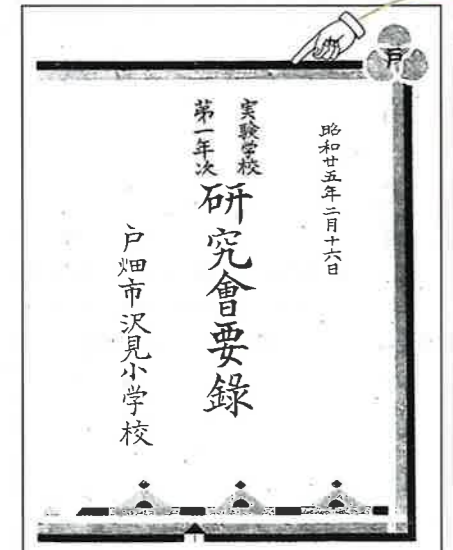 戸
昭和廿五年二月十六日
実験学校
第一年次
研究會要録
戸畑市沢見小学校